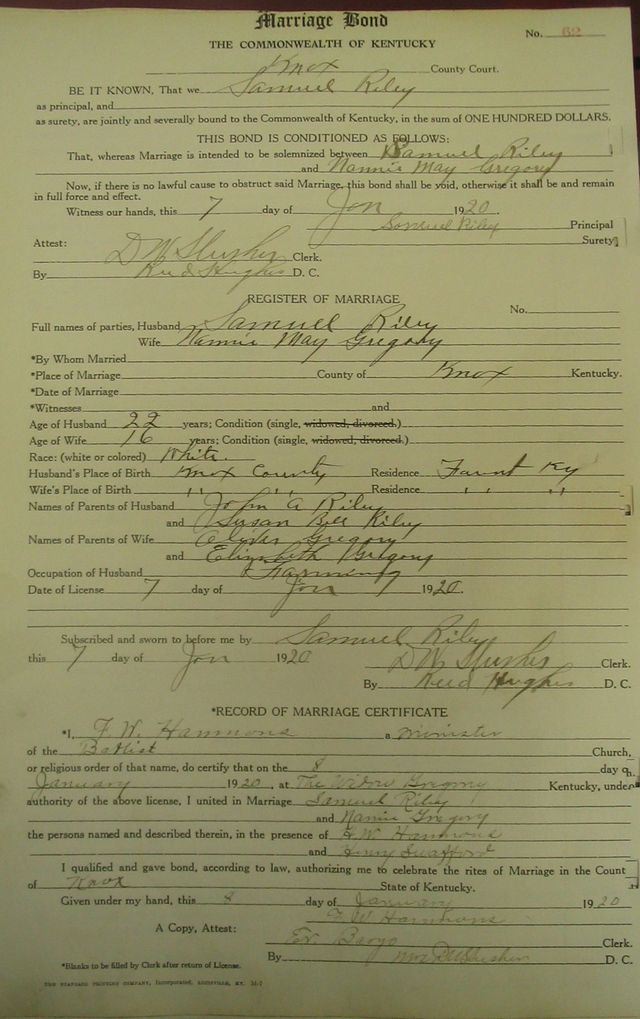 Marriage Bond
No. 62
THE COMMONWEALTH OF KENTUCKY
Knox County Court.
BE IT KNOWN, That we Samuel Riley
as principal, and
as surety, are jointly and severally bound to the Commonwealth of Kentucky, in the sum of ONE HUNDRED DOLLARS.
THIS BOND IS CONDITIONED AS FOLLOWS:
That, whereas Marriage is intended to be solemnized between Samuel Riley
and Nannie May Gregory
Now, if there is no lawful cause to obstruct said Marriage, this bond shall be void, otherwise it shall be and remain
in full force and effect.
Witness our hands, this 7 day of Jan 1920.
Samuel Riley Principal
Attest: Surety
D W Slusher Clerk.
By Reed Hughes D. C.
REGISTER OF MARRIAGE
No.
Full names of parties, Husband Samuel Riley
Wife Nannie May Gregory
*By Whom Married
*Place of Marriage County of Knox Kentucky.
*Date of Marriage
*Witnesses and
Age of Husband 22 years; Condition (single, widowed, divorced.)
Age of Wife 16 years; Condition (single, widowed, divorced.)
Race: (white or colored) White.
Husband's Place of Birth Knox County Residence Ky
Wife's Place of Birth " " Residence " "
Names of Parents of Husband John A Riley
and Susan Bell Riley
Names of Parents of Wife Gregory
and Elizabeth Gregory
Occupation of Husband Farming
Date of License 7 day of Jan 1920.
Subscribed and sworn to before me by Samuel Riley
this 7 day of Jan 1920
D W Slusher Clerk.
By Reed Hughes D. C.
*RECORD OF MARRIAGE CERTIFICATE
*I, F. W. Hammons a minister
of the Batlist Church,
or religious order of that name, do certify that on the 8 day o
January 1920, at The Widow Gregory Kentucky, under
authority of the above license, I united in Marriage Samuel Riley
and Nannie Gregory
the persons named and described therein, in the presence of W Hammons
and Henry
I qualified and gave bond, according to law, authorizing me to celebrate the rites of Marriage in the Count
of Knox State of Kentucky.
Given under my hand, this 8 day of January 1920
F W Hammons
A Copy, Attest: Clerk.
By D. C.
*Blanks to be filled by Clerk after return of License.
THE STANDARD PRINTING COMPANY, Incorporated, LOUISVILLE, KY.